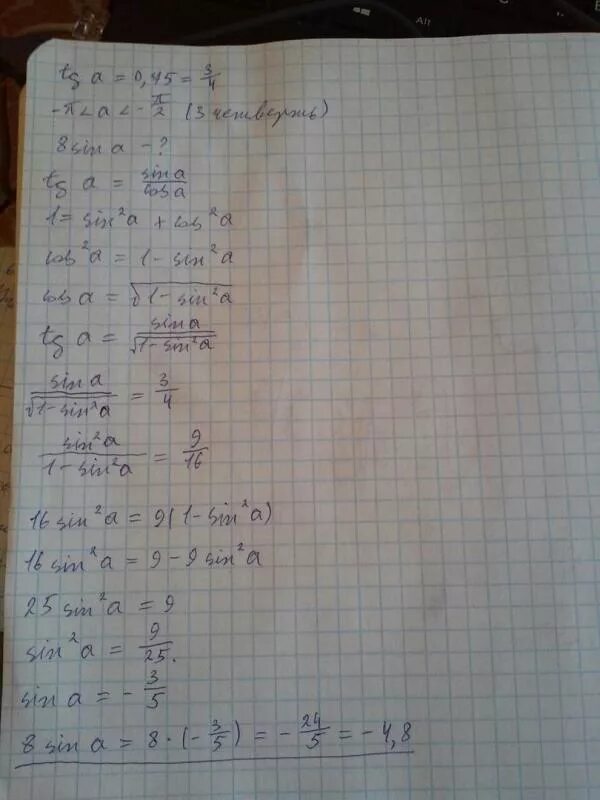 tg a = 0,75 = 3/4
-π < a < -π/2 (3 четверть)
8 sin a - ?
tg a = sin a / cos a
1 = sin²a + cos²a
cos²a = 1 - sin²a
cos a = √(1 - sin²a)
tg a = sin a / √(1 - sin²a)
sin a / √(1 - sin²a) = 3/4
sin²a / (1 - sin²a) = 9/16
16 sin²a = 9(1 - sin²a)
16 sin²a = 9 - 9 sin²a
25 sin²a = 9
sin²a = 9/25.
sin a = - 3/5
8 sin a = 8 · (- 3/5) = - 24/5 = - 4,8